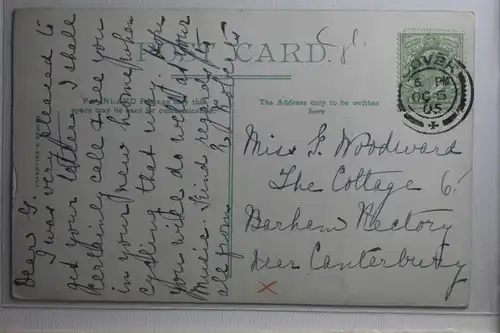 POST CARD.
For INLAND Postage only this
space may be used for communication.
The Address only to be written
here
VALENTINE'S SERIES
DOVER
6 PM
OC 5
05
Dear G.
I was very pleased to
get your letter. I shall
certainly call & see you
in your new home when
cycling that way. Hope
you will do well at your
music. Kind regards to
all from
Miss G. Woodward
The Cottage 6.
Barham Rectory
Near Canterbury
x